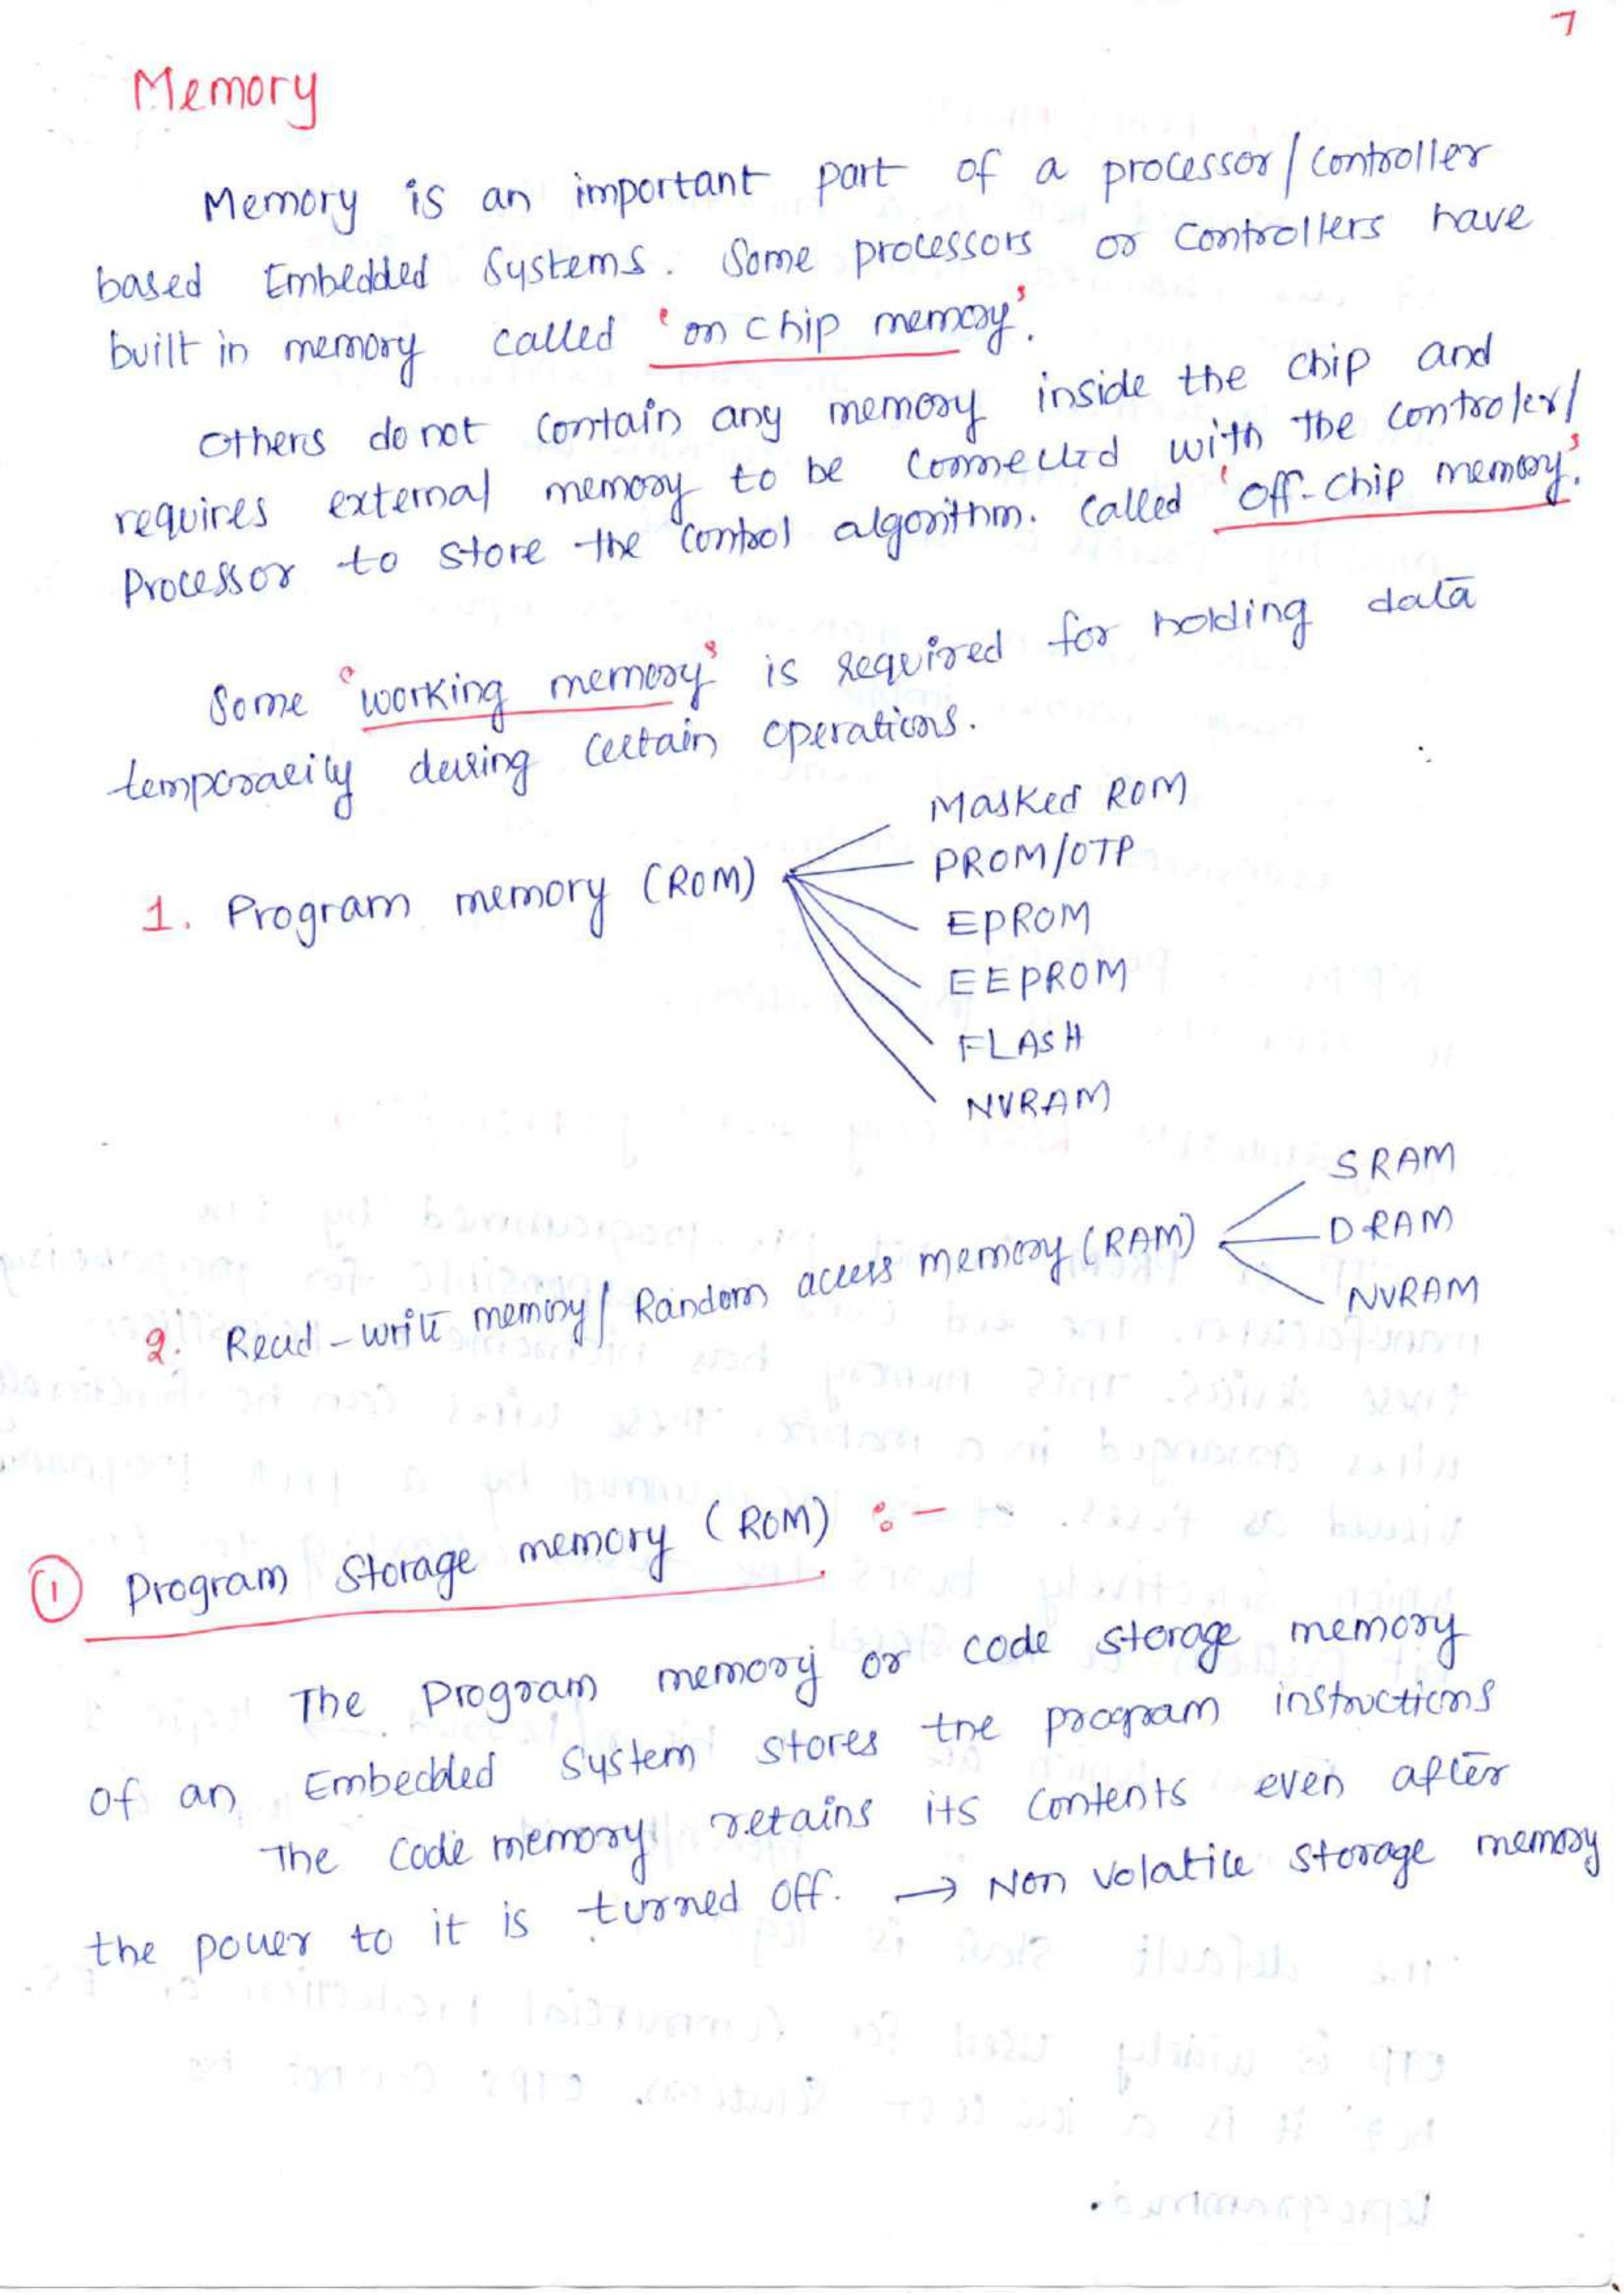 7
Memory
Memory is an important part of a processor/controller
based Embedded Systems. Some processors or controllers have
built in memory called 'on chip memory'.
Others do not contain any memory inside the chip and
requires external memory to be connected with the controler/
Processor to store the control algorithm. called 'off-chip memory'.
Some 'working memory' is required for holding data
temporarily during certain operations.
1. Program memory (ROM)
Masked ROM
PROM/OTP
EPROM
EEPROM
FLASH
NVRAM
2. Read-write memory/Random access memory (RAM)
SRAM
DRAM
NVRAM
① Program Storage memory (ROM) :-
The Program memory or code storage memory
of an Embedded System stores the program instructions
The Code memory retains its contents even after
the power to it is turned off. → Non volatile storage memory